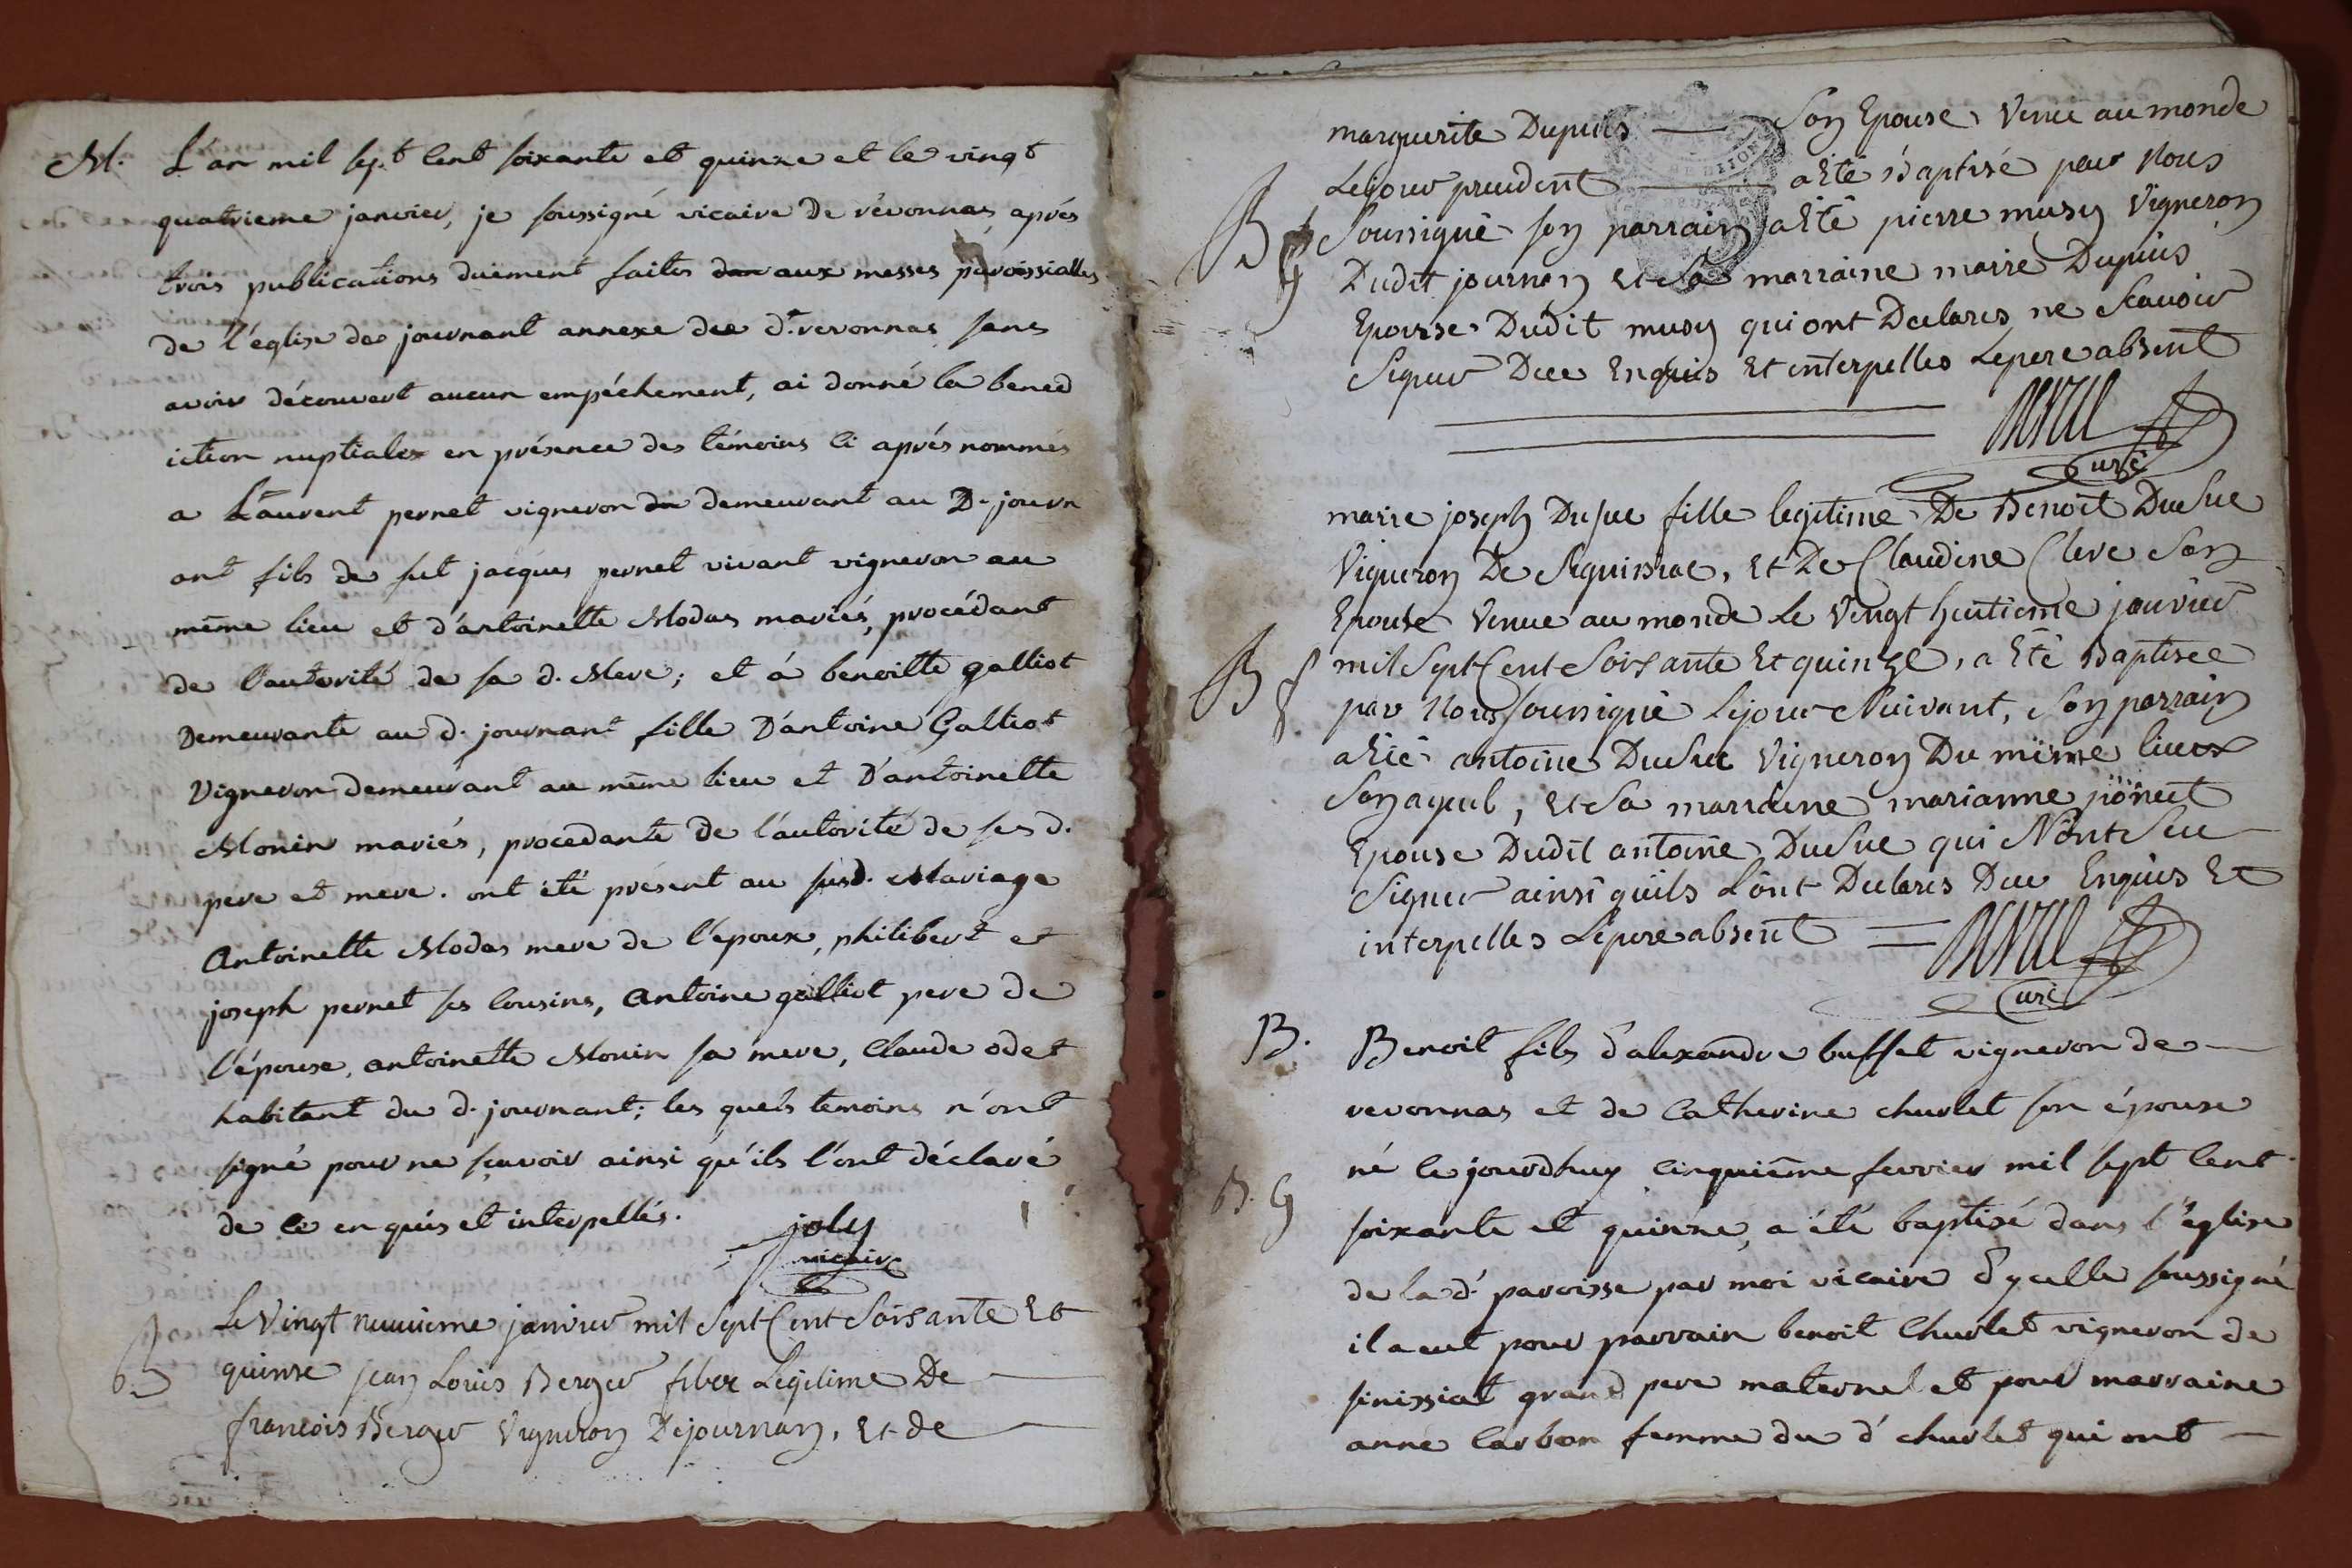 M. L'an mil sept cent soixante et quinze et le vingt
quatrieme janvier, je soussigné vicaire de révonnas, aprés
trois publications duëment faites aux messes paroissialles
de l'église de journant annexe du d.t revonnas, sans
avoir découvert aucun empéchement, ai donné la bened
iction nuptiales en présence des témoins ci aprés nommés
a Laurent pernet vigneron demeurant au D. journ
ant fils de fut jacques pernet vivant vigneron au
même lieu et d'antoinette Modas mariés, procédant
de l'autorité de sa d. Mere; et á benoitte galliot
Demeurante au d. journant fille D'antoine Galliot
Vigneron demeurant au même lieu et D'antoinette
Monin mariés, procedante de l'autorité de ses d.
pere et mere. ont été présent au susd. Mariage
Antoinette Modas mere de l'epoux, philibert et
joseph pernet ses cousins, Antoine galliot pere de
l'épouse, antoinette Monin sa mere, Claude odet
habitant du d. journant; les quels temoins n'ont
signé pour ne sçavoir ainsi qu'ils l'ont déclaré
de ce enquis et interpellés.
joly
vicaire
B Le Vingt neuvieme janvier mil Sept Cent Soisante Et
quinze jean Louis Berger Legitime De
francois Berger Vigneron Dejournan, Et de
marguerite Dupuis Son Epouse Venu au monde
Lejour precedent a Eté Baptisé par Nous
B Soussigné son parrain a Eté pierre musy Vigneron
Dudit journan Et Sa marraine marie Dupuis
Epouse Dudit musy qui ont Declarés ne Scavoir
Signer Dece Enquis Et interpelles Lepere absent
Curé
marie joseph DuSuc fille legitime De Benoit DuSuc
Vigneron De Seguissiac, Et De Claudine Clerc Son
Epouse Venue au monde Le Vingt huitieme janvier
B mil Sept Cent Soisante Et quinze, a Eté Baptisée
par Nous soussigné Lejour Suivant, Son parrain
a Eté antoine DuSuc Vigneron Du même lieux
Son ayeul, Et Sa marraine marianne
Epouse Dudit antoine DuSuc qui N'ont Seu
Signer ainsi qu'ils L'ont Declarés Dece Enquis Et
interpelles Lepere absent
Curé
B. Benoit fils d'alexandre buffet vigneron de
revonnas et de Catherine churlet son épouse
né cejourdhuy cinquiême fevrier mil sept cent
B. soixante et quinze, a été baptisé dans l'église
de la d. paroisse par moi vicaire d'ycelle soussigné
il a eut pour parrain benoit Churlet vigneron de
sinissiat grand pere maternel et pour marraine
anne Carbon femme du d. churlet qui ont